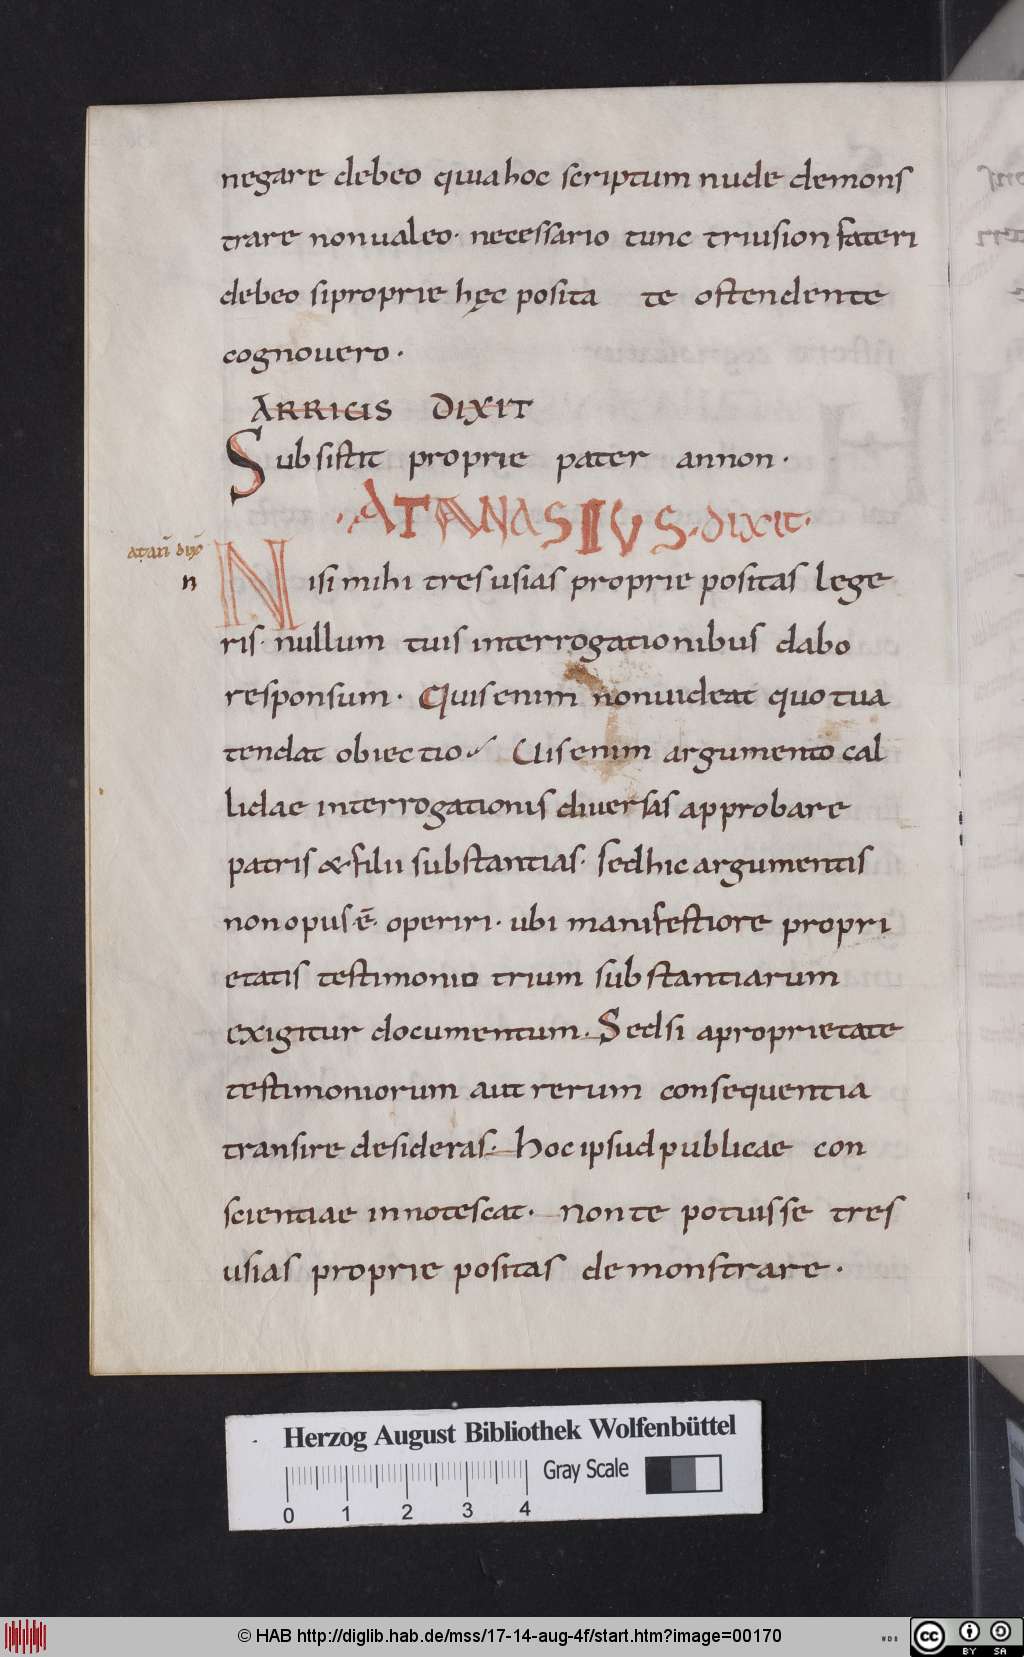 negare debeo quia hoc scriptum nude demons
trare non ualeo· necessario tunc triusion fateri
debeo si proprie hęc posita te ostendente
cognouero·
ARRIUS DIXIT
Subsistit proprie pater annon·
·ATANASIUS·dixit·
atañ dix̄
n
Nisi mihi tres usias proprie positas lege
ris· nullum tuis interrogationibus dabo
responsum· Quis enim non uideat quo tua
tendat obiectio Uis enim argumento cal
lidae interrogationis diuersas approbare
patris & filii substantias· sed hic argumentis
non opus·ē· operiri· ubi manifestiore propri
etatis testimonio trium substantiarum
exigitur documentum· Sed si a proprietate
testimoniorum aut rerum consequentia
transire desideras· hoc ipsud publicae con
scientiae innotescat· Non te potuisse tres
usias proprie positas demonstrare·
Herzog August Bibliothek Wolfenbüttel
Gray Scale
0 1 2 3 4
© HAB http://diglib.hab.de/mss/17-14-aug-4f/start.htm?image=00170
WDB
cc BY SA